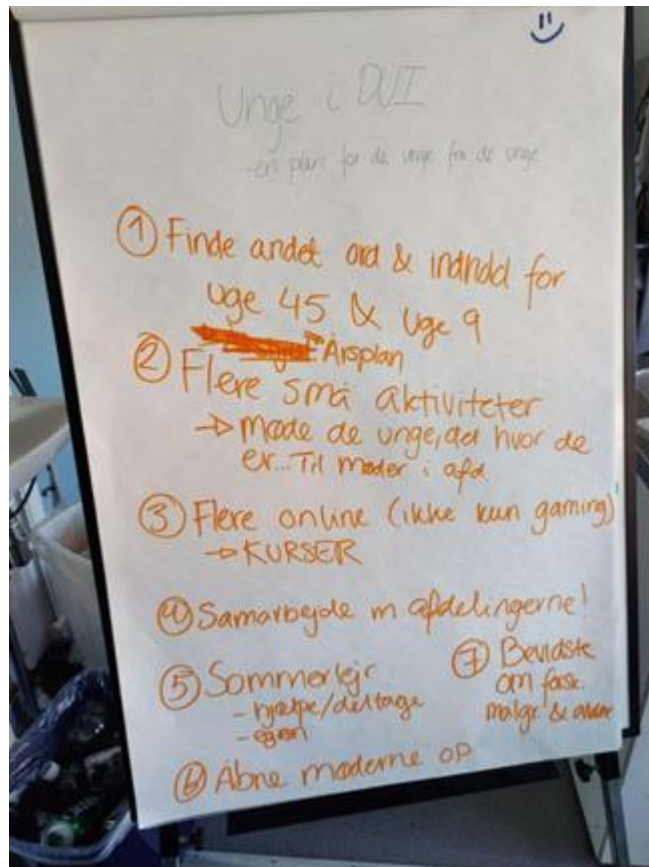 Unge i DUI
-en plan for de unge fra de unge
① Finde andet ord & indhold for
uge 45 & uge 9
Årsplan
② Flere små aktiviteter
→ møde de unge, der hvor de
er... Til møder i afd
③ Flere online (ikke kun gaming)
→ KURSER
④ Samarbejde m afdelingerne!
⑤ Sommerlejr
- hjælpe/deltage
- egen
⑦ Bevidste
om forsk.
målgr & andre
⑥ Åbne møderne op